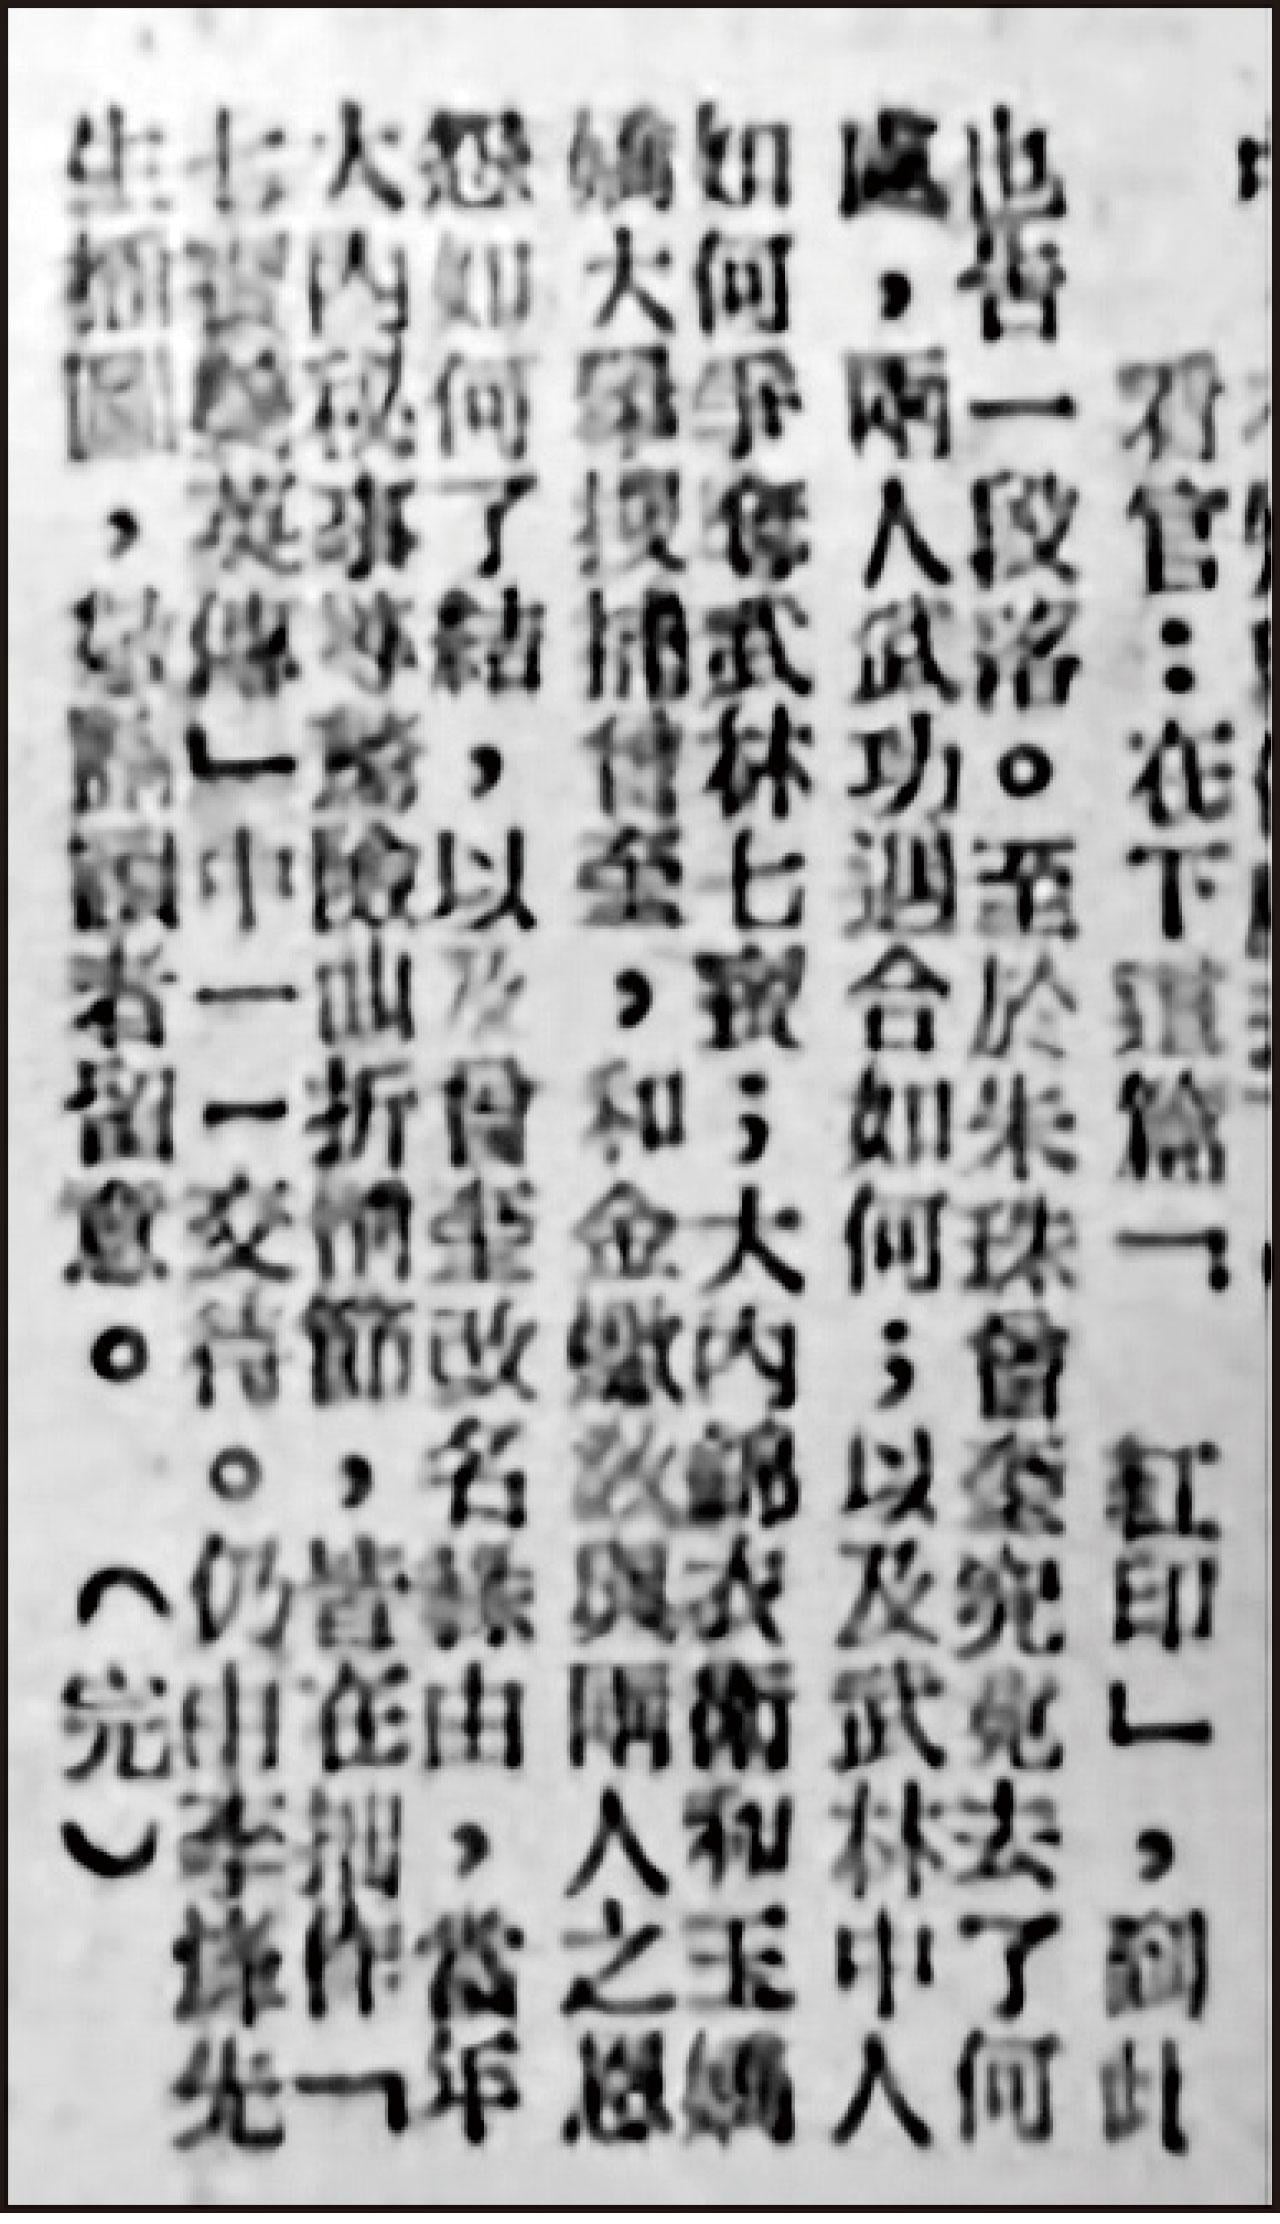 看官:在下這篇「 紅印」,到此
也告一段洛。至於朱珠曾至究竟去了何
處,兩人武功廻合如何;以及武林中人
如何爭奪武林七寶;大內錦衣衛和玉嬌
嬌大舉搜捕曾至,和金 以與兩人之恩
怨如何了結,以及曾至改名 由,當年
大內秘事等驚險曲折情節,皆在拙作「
七 凝 」中一一交待。仍由李 先
生插圖,敬 讀者留意。 (完)